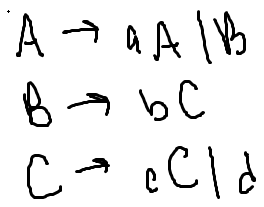 A → aA | B
B → bC
C → cC | d